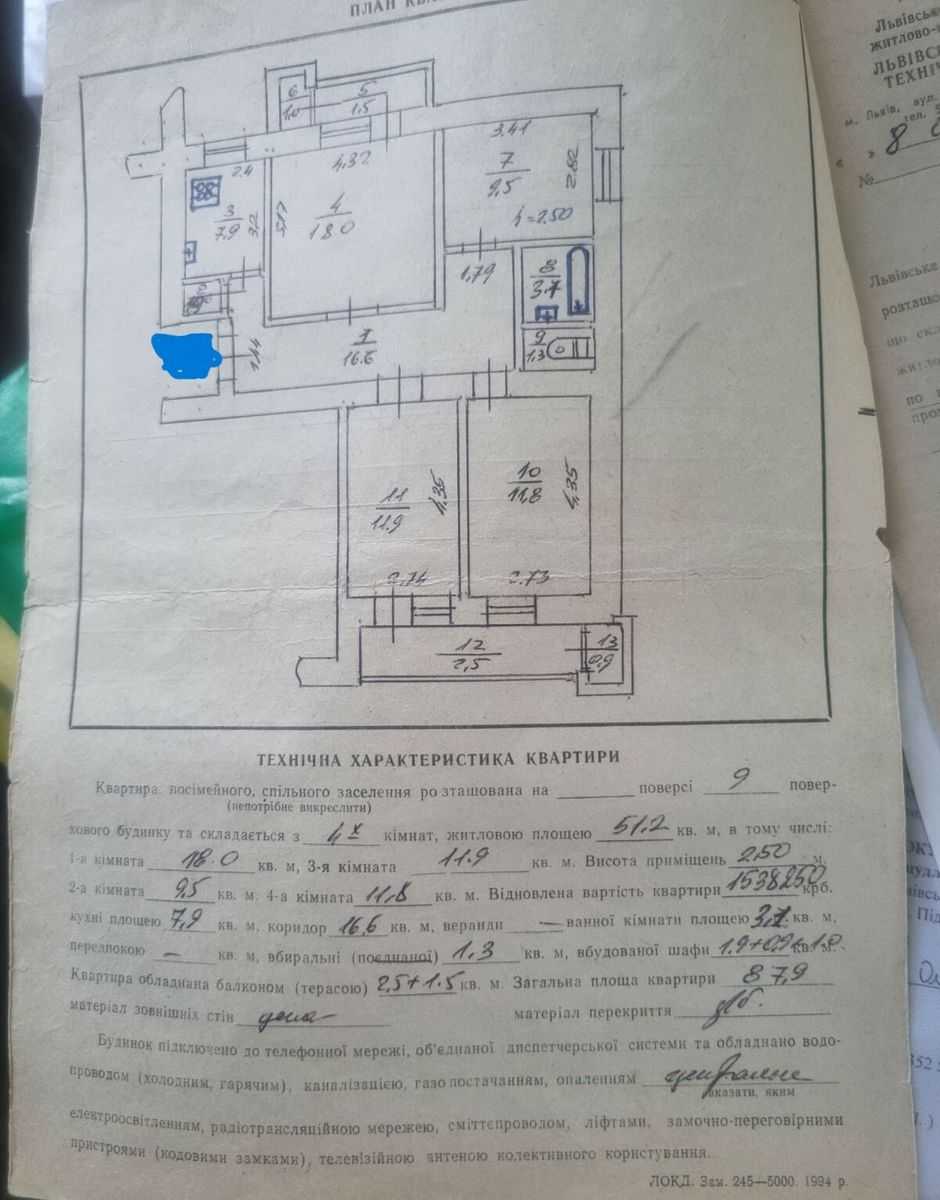 ПЛАН КВ
6
1,0
5
1.5
2.4
3
7.9
3.2
4.32
4
18.0
5.17
3.41
7
9,5
2.82
h=2.50
1,79
8
3.7
9
1,3
1
16.6
1.44
11
11.9
4.35
2.74
10
11,8
4.35
2.73
12
2,5
13
0.9
ТЕХНІЧНА ХАРАКТЕРИСТИКА КВАРТИРИ
Квартира посімейного, спільного заселення розташована на поверсі 9 повер-
(непотрібне викреслити)
хового будинку та складається з 4х кімнат, житловою площею 51.2 кв. м, в тому числі:
1-а кімната 18.0 кв. м, 3-я кімната 11.9 кв. м. Висота приміщень 2.50 м.
2-а кімната 9,5 кв. м. 4-а кімната 11,8 кв. м. Відновлена вартість квартири 1538250 крб.
кухні площею 7,9 кв. м, коридор 16,6 кв. м, веранди — ванної кімнати площею 3,7 кв. м,
передпокою — кв. м, вбиральні (поєднаної) 1.3 кв. м, вбудованої шафи 1.9+0.9+1.0 кв. м.
Квартира обладнана балконом (терасою) 2,5+1.5 кв. м. Загальна площа квартири 87,9
матеріал зовнішніх стін цегла матеріал перекриття з/б.
Будинок підключено до телефонної мережі, об'єднаної диспетчерської системи та обладнано водо-
проводом (холодним, гарячим), каналізацією, газопостачанням, опаленням центральне
вказати, яким
електроосвітленням, радіотрансляційною мережею, сміттєпроводом, ліфтами, замочно-переговірними
пристроями (кодовими замками), телевізійною антеною колективного користування.
ЛОКД. Зам. 245—5000. 1994 р.
Львівськ
житлово-к
ЛЬВІВСЬ
ТЕХНІЧ
м. Львів, вул.
тел.
« 8
№
Львівське
розташо
що скл
житло
по
про